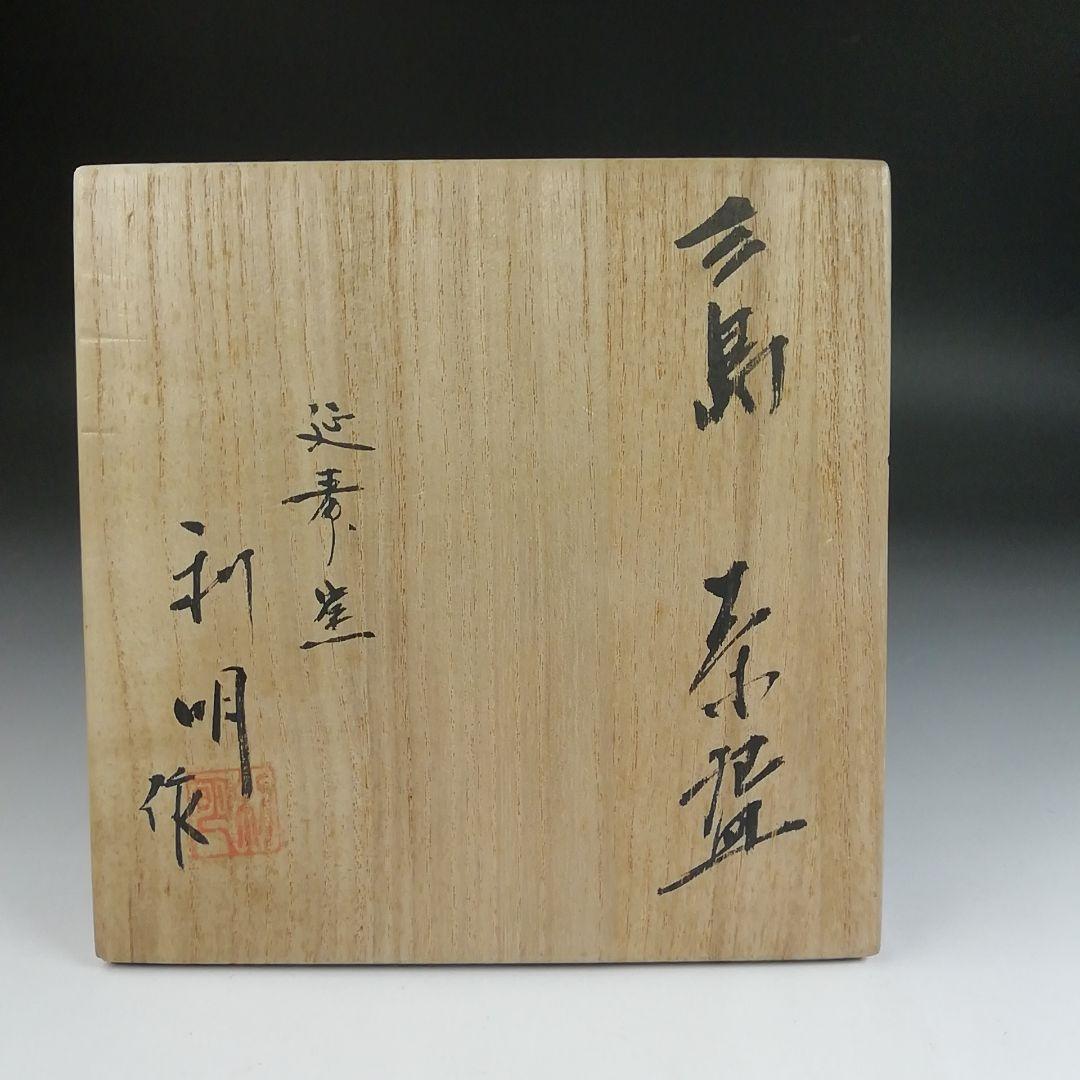 三島 茶盌
延寿窯
利明作